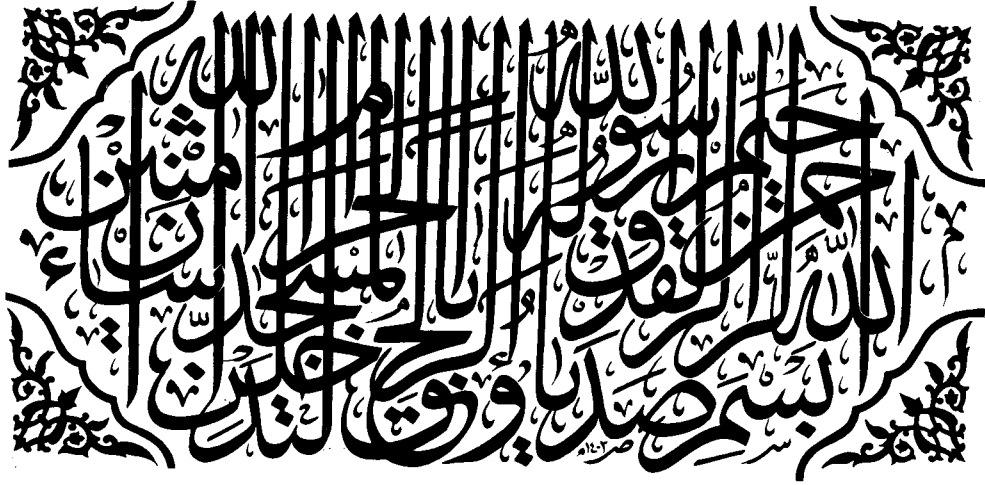 بسم الله الرحمن الرحيم
لقد صدق الله رسوله الرؤيا بالحق لتدخلن المسجد الحرام إن شاء الله آمنين